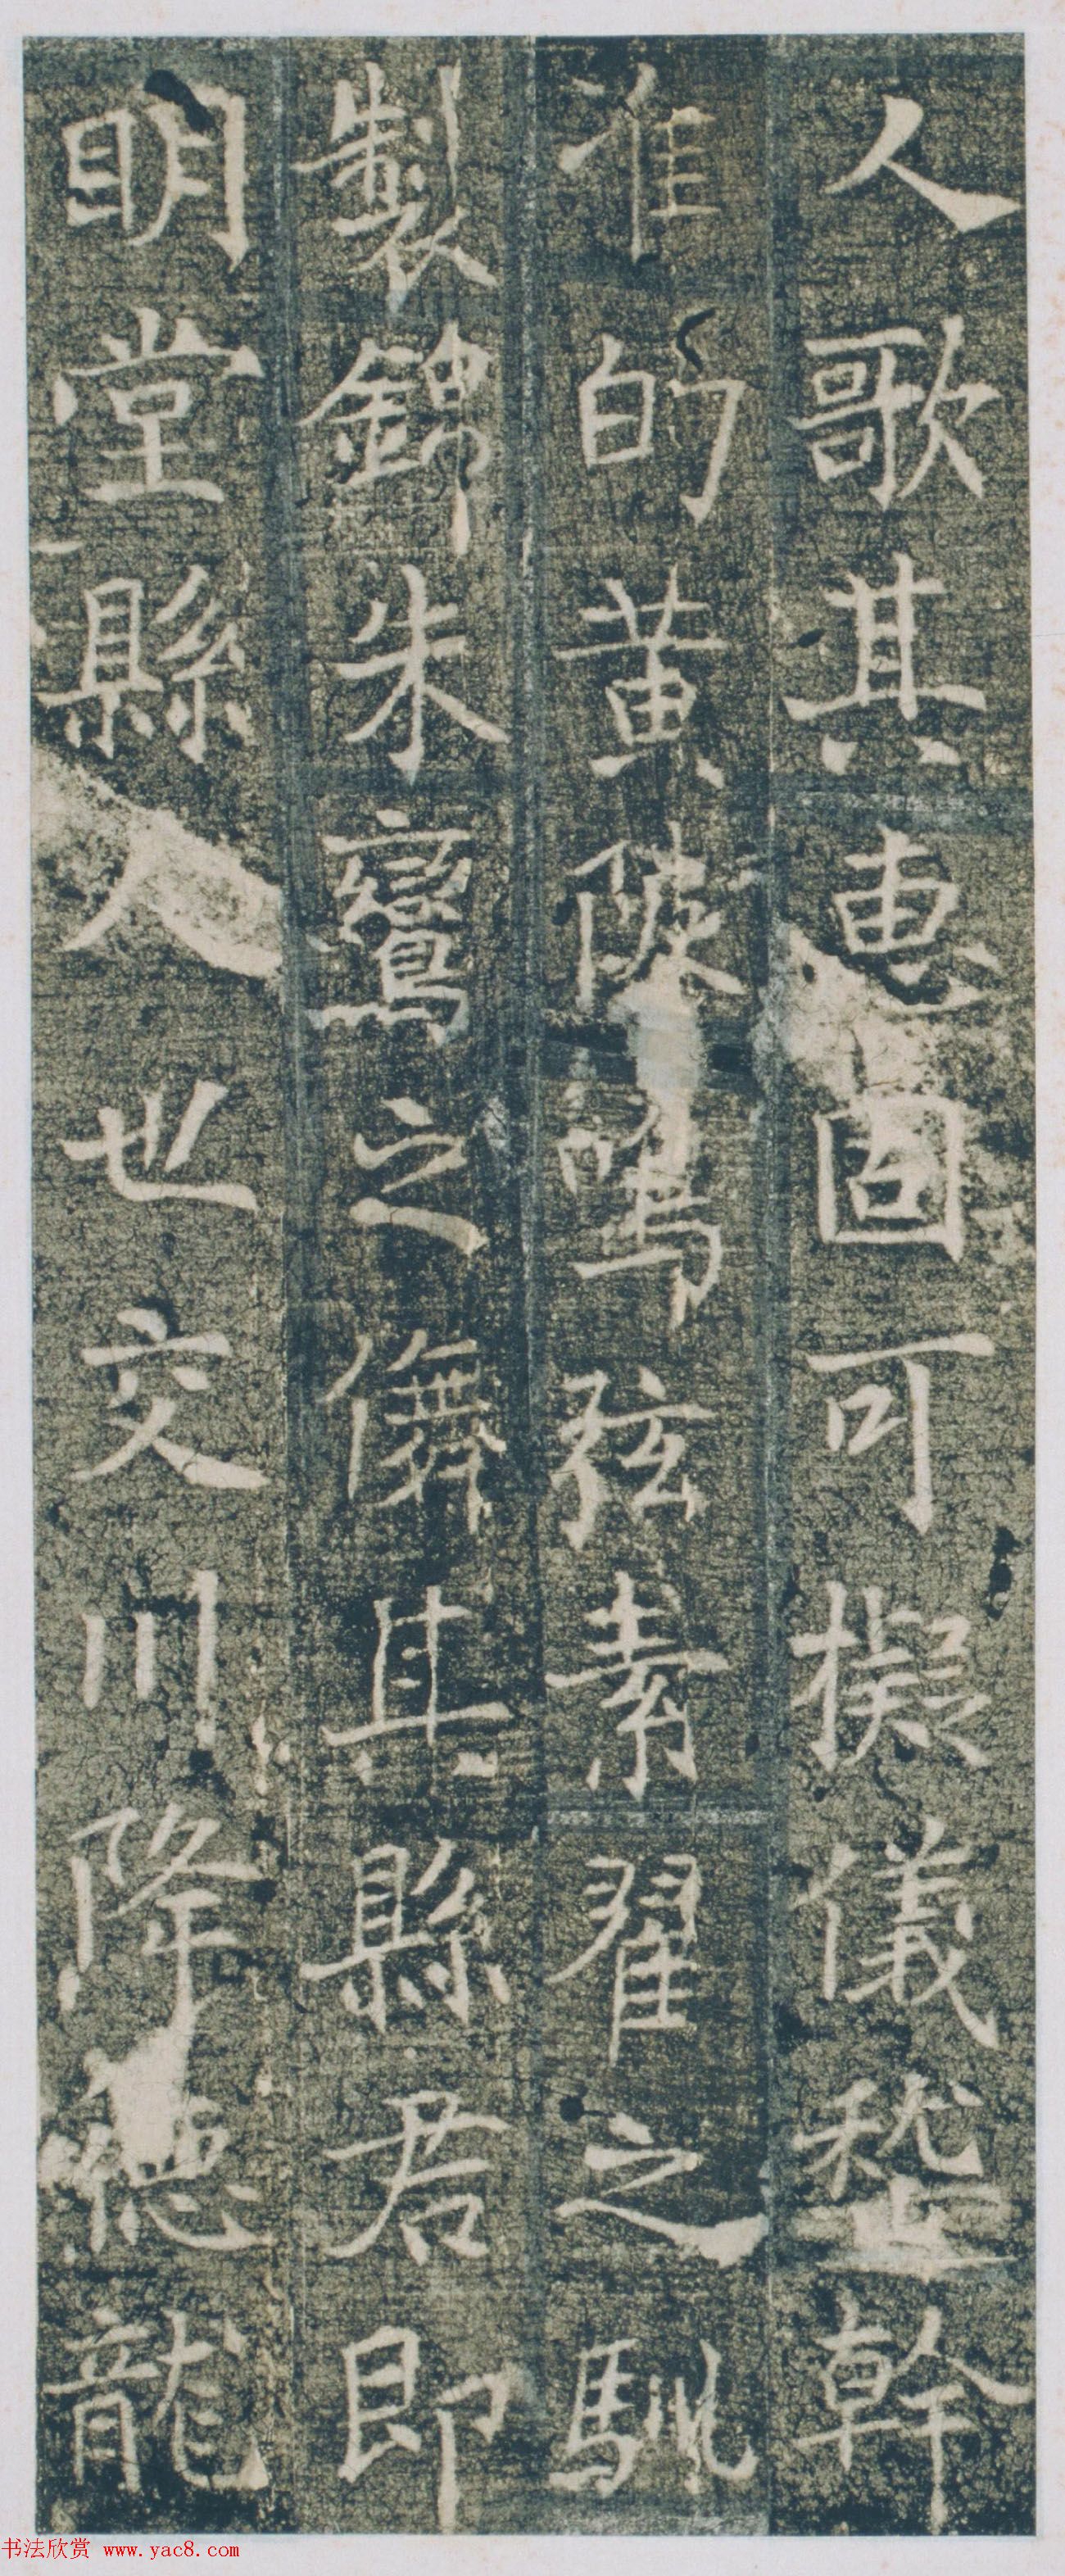 人歌其惠固可擬儀嵇幹
准的黄陂鳴弦素翟之馴
製錦朱鸞之儛其縣君即
明堂縣人也交川降德龍
书法欣赏 www.yac8.com